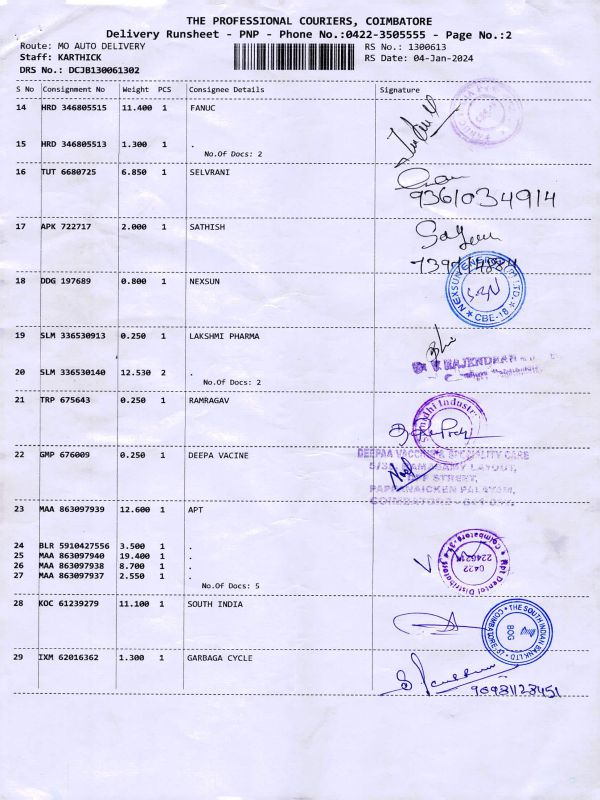 THE PROFESSIONAL COURIERS, COIMBATORE
Delivery Runsheet - PNP - Phone No.:0422-3505555 - Page No.:2
Route: MO AUTO DELIVERY RS No.: 1300613
Staff: KARTHICK RS Date: 04-Jan-2024
DRS No.: DCJB130061302
S No Consignment No Weight PCS Consignee Details Signature
14 HRD 346805515 11.400 1 FANUC
15 HRD 346805513 1.300 1 .
No.Of Docs: 2
16 TUT 6680725 6.850 1 SELVRANI
9361034914
17 APK 722717 2.000 1 SATHISH
18 DDG 197689 0.800 1 NEXSUN
NEXSUN ENERGY PVT LTD. CBE-18
19 SLM 336530913 0.250 1 LAKSHMI PHARMA
RAJENDRAN
20 SLM 336530140 12.530 2 .
No.Of Docs: 2
21 TRP 675643 0.250 1 RAMRAGAV
22 GMP 676009 0.250 1 DEEPA VACINE
DEEPAA VACCINE & SPECIALITY CARE
RAMASAMY LAYOUT,
STREET,
PAPPANAICKEN PALAYAM,
COIMBATORE - 641 037.
23 MAA 863097939 12.600 1 APT
24 BLR 5910427556 3.500 1 .
25 MAA 863097940 19.400 1 .
26 MAA 863097938 8.700 1 .
27 MAA 863097937 2.550 1 .
No.Of Docs: 5
Dental Distributors Coimbatore 0422
28 KOC 61239279 11.100 1 SOUTH INDIA
THE SOUTH INDIAN BANK LTD COIMBATORE BOG
29 IXM 62016362 1.300 1 GARBAGA CYCLE